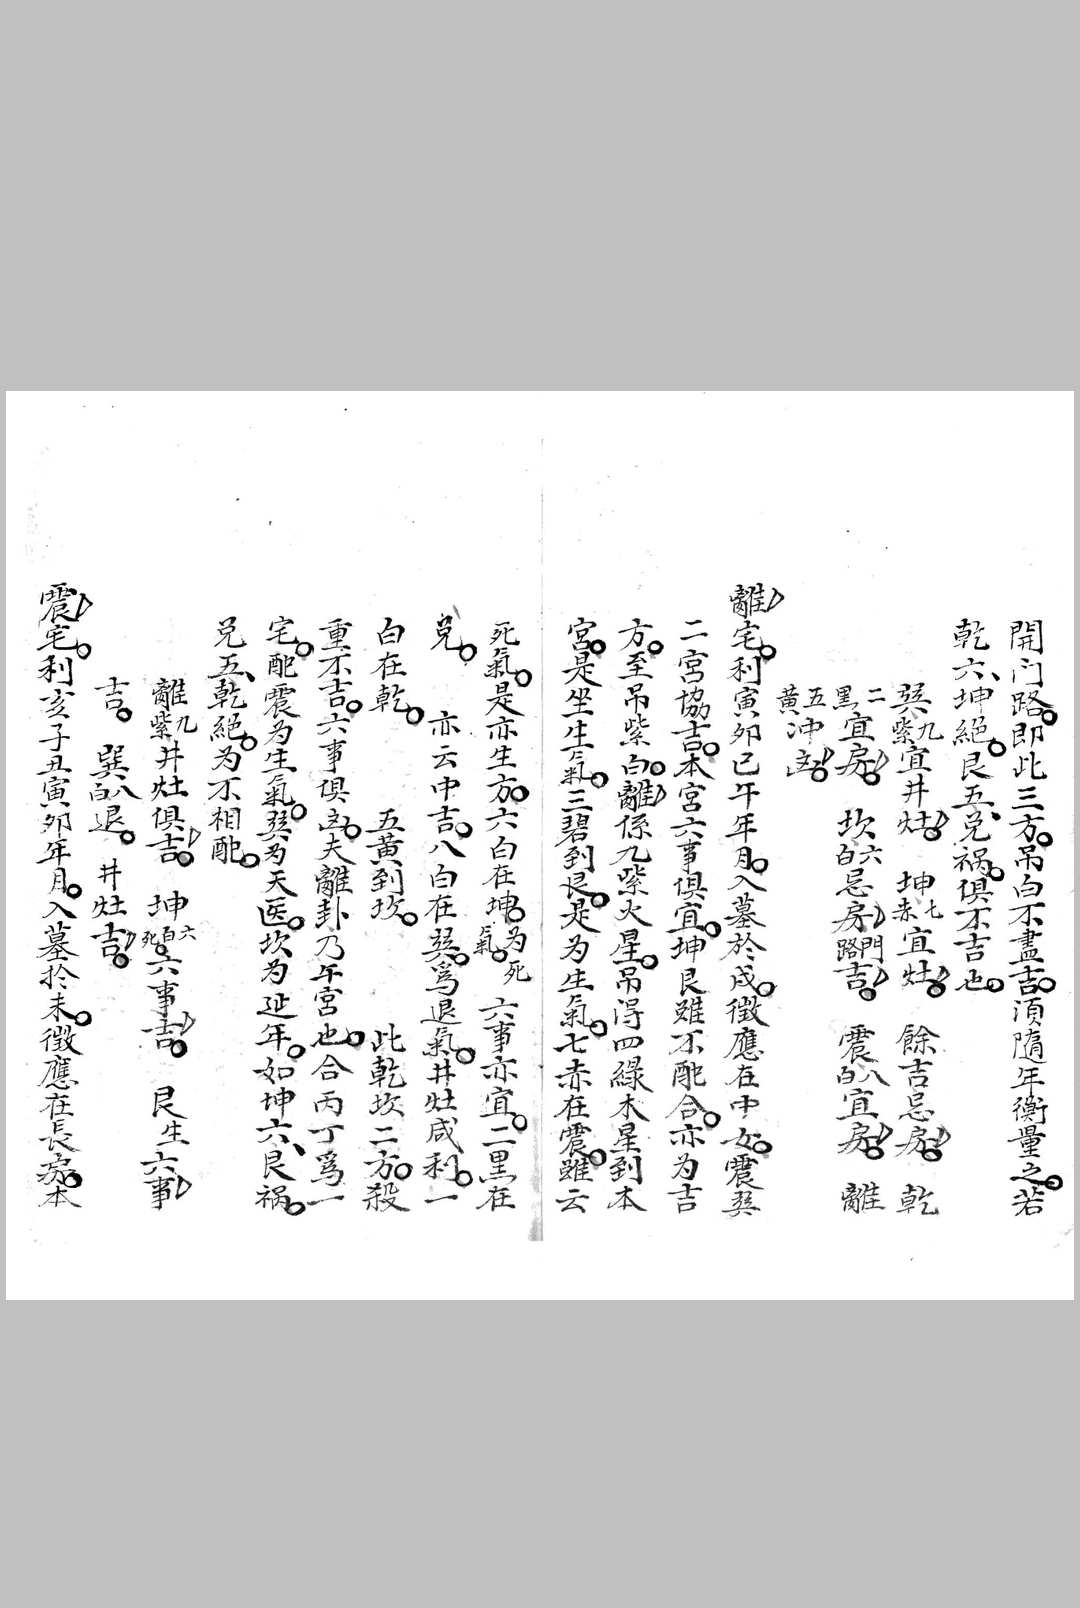 開门路即此三方吊白不盡吉須隨年衡量之若
乾六坤絕艮五兑祸俱不吉也
巽九紫宜井灶 坤七赤宜灶 餘吉忌房 乾
二黑宜房 坎六白忌房門路吉 震八白宜房 離
五黃冲凶
離宅利寅卯巳午年月入墓於戌徵應在中女震巽
二宮協吉本宮六事俱宜坤艮雖不配合亦为吉
方至吊紫白離係九紫火星吊得四綠木星到本
宮是坐生氣三碧到艮是为生氣七赤在震雖云
死氣是亦生方六白在坤为死氣 六事亦宜二黑在
兑 亦云中吉八白在巽爲退氣井灶咸利一
白在乾 五黃到坎 此乾坎二方殺
重不吉六事俱凶夫離卦乃午宮也合丙丁爲一
宅配震为生氣巽为天医坎为延年如坤六艮祸
兑五乾絕为不相配
離九紫井灶俱吉 坤六白死六事吉 艮生六事
吉 巽八白退井灶吉
震宅利亥子丑寅卯年月入墓於未徵應在長房本